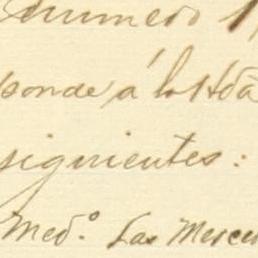 numero 1
ponde á los Hda
siguientes:
Med.º Las Merce